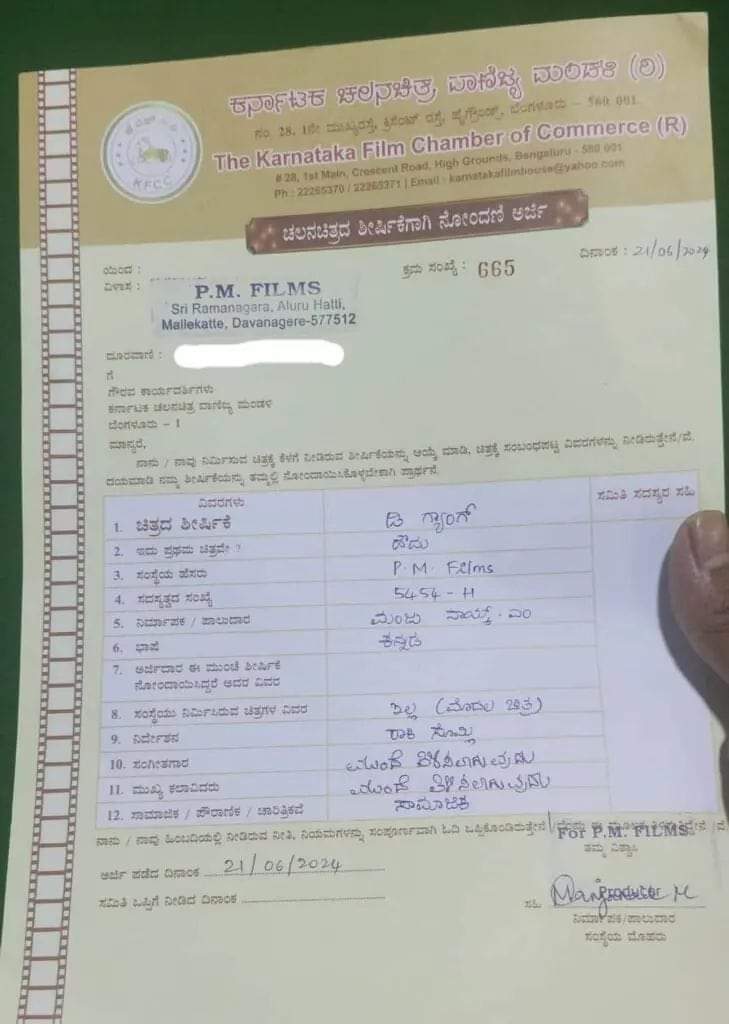 ಕರ್ನಾಟಕ ಚಲನಚಿತ್ರ ವಾಣಿಜ್ಯ ಮಂಡಳಿ (ರಿ)
ನಂ. 28, 1ನೇ ಮುಖ್ಯರಸ್ತೆ, ಕ್ರಿಸೆಂಟ್ ರಸ್ತೆ, ಹೈಗ್ರೌಂಡ್ಸ್, ಬೆಂಗಳೂರು – 560 001.
The Karnataka Film Chamber of Commerce (R)
# 28, 1st Main, Crescent Road, High Grounds, Bengaluru - 560 001
Ph : 22265370 / 22265371 | Email : karnatakafilmhouse@yahoo.com
KFCC
ಚಲನಚಿತ್ರದ ಶೀರ್ಷಿಕೆಗಾಗಿ ನೋಂದಣಿ ಅರ್ಜಿ
ಯಿಂದ :
ಕ್ರಮ ಸಂಖ್ಯೆ : 665
ದಿನಾಂಕ : 21/06/2024
ವಿಳಾಸ :
P.M. FILMS
Sri Ramanagara, Aluru Hatti,
Mallekatte, Davanagere-577512
ದೂರವಾಣಿ :
ಗೆ
ಗೌರವ ಕಾರ್ಯದರ್ಶಿಗಳು
ಕರ್ನಾಟಕ ಚಲನಚಿತ್ರ ವಾಣಿಜ್ಯ ಮಂಡಳಿ
ಬೆಂಗಳೂರು – 1
ಮಾನ್ಯರೆ,
ನಾನು / ನಾವು ನಿರ್ಮಿಸುವ ಚಿತ್ರಕ್ಕೆ ಕೆಳಗೆ ನೀಡಿರುವ ಶೀರ್ಷಿಕೆಯನ್ನು ಆಯ್ಕೆ ಮಾಡಿ, ಚಿತ್ರಕ್ಕೆ ಸಂಬಂಧಪಟ್ಟ ವಿವರಗಳನ್ನು ನೀಡಿರುತ್ತೇನೆ/ವೆ.
ದಯಮಾಡಿ ನಮ್ಮ ಶೀರ್ಷಿಕೆಯನ್ನು ತಮ್ಮಲ್ಲಿ ನೋಂದಾಯಿಸಿಕೊಳ್ಳಬೇಕಾಗಿ ಪ್ರಾರ್ಥನೆ.
ವಿವರಗಳು
ಸಮಿತಿ ಸದಸ್ಯರ ಸಹಿ
1. ಚಿತ್ರದ ಶೀರ್ಷಿಕೆ ಡಿ ಗ್ಯಾಂಗ್
2. ಇದು ಪ್ರಥಮ ಚಿತ್ರವೇ ? ಹೌದು
3. ಸಂಸ್ಥೆಯ ಹೆಸರು P.M. Films
4. ಸದಸ್ಯತ್ವದ ಸಂಖ್ಯೆ 5454-H
5. ನಿರ್ಮಾಪಕ / ಪಾಲುದಾರ ಮಂಜು ನಾಯ್ಕ್.ಎಂ
6. ಭಾಷೆ ಕನ್ನಡ
7. ಅರ್ಜಿದಾರ ಈ ಮುಂಚೆ ಶೀರ್ಷಿಕೆ
ನೋಂದಾಯಿಸಿದ್ದರೆ ಅದರ ವಿವರ
8. ಸಂಸ್ಥೆಯು ನಿರ್ಮಿಸಿರುವ ಚಿತ್ರಗಳ ವಿವರ ಇಲ್ಲ (ಮೊದಲ ಚಿತ್ರ)
9. ನಿರ್ದೇಶನ ರಾಕಿ ಸೋಮ್ಲಿ
10. ಸಂಗೀತಗಾರ ಮುಂದೆ ತಿಳಿಸಲಾಗುವುದು
11. ಮುಖ್ಯ ಕಲಾವಿದರು ಮುಂದೆ ತಿಳಿಸಲಾಗುವುದು
12. ಸಾಮಾಜಿಕ / ಪೌರಾಣಿಕ / ಚಾರಿತ್ರಿಕವೆ ಸಾಮಾಜಿಕ
ನಾನು / ನಾವು ಹಿಂಬದಿಯಲ್ಲಿ ನೀಡಿರುವ ನೀತಿ, ನಿಯಮಗಳನ್ನು ಸಂಪೂರ್ಣವಾಗಿ ಓದಿ ಒಪ್ಪಿಕೊಂಡಿರುತ್ತೇನೆ
For P.M. FILMS
ತಮ್ಮ ವಿಶ್ವಾಸಿ
ಅರ್ಜಿ ಪಡೆದ ದಿನಾಂಕ 21/06/2024
ಸಮಿತಿ ಒಪ್ಪಿಗೆ ನೀಡಿದ ದಿನಾಂಕ
ಸಹಿ
Producer
ನಿರ್ಮಾಪಕ/ಪಾಲುದಾರ
ಸಂಸ್ಥೆಯ ಮೊಹರು